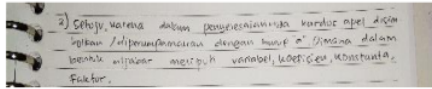 2) Setuju, karena dalam penyelesaiannya kardus apel disim
bolkan / diperumpamakan dengan huruf "a". Dimana dalam
bentuk aljabar meliputi variabel, koefisien, konstanta,
Faktor.